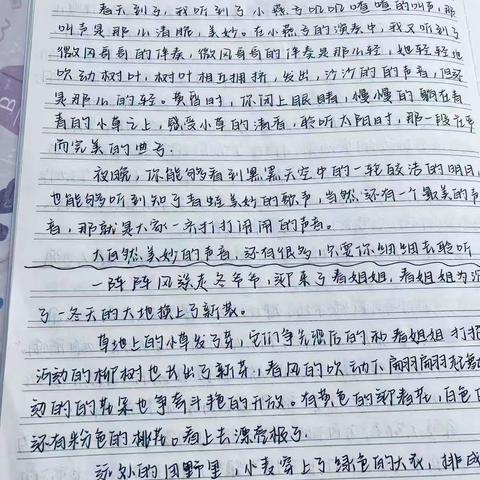 春天到了,我听到了小燕子叽叽喳喳的叫声,那
叫声是那么清脆,美妙。在小燕子的演奏中,我又听到了
微风哥哥的伴奏,微风哥哥的伴奏是那么轻,她轻轻地
吹动树叶,树叶相互拥挤,发出,沙沙的的声音,但
是那么的轻。黄昏时,你闭上眼睛,慢慢的躺在青
青的小草之上,感受小草的清香,聆听太阳时,那一段
而完美的曲子。
夜晚,你能够看到黑黑天空中的一轮皎洁的明月,
也能够听到知了与蛙美妙的歌声,当然还有一个最美的声
音,那就是大家一齐打打闹闹的声音。
大自然美妙的声音,还有很多,只要你细细去聆听
一阵阵风送走冬爷爷,迎来了春姐姐,春姐姐为
了一冬天的大地换上了新装。
草地上的小草发了芽,它们争先恐后的和春姐姐打招
河动的柳树也长出了新芽,春风的吹动下翩翩起
动的的花朵也争奇斗艳的开放。有黄色的迎春花,白色
还有粉色的桃花。看上去漂亮极了。
远处的田野里,小麦穿上了绿色的大衣,排成